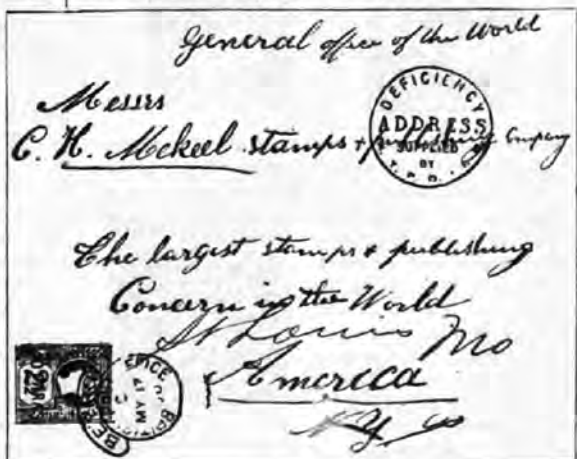 General office of the World
Messrs
C. H. Mekeel stamps & publishing Company
DEFICIENCY
ADDRESS
SUPPLIED
BY
The largest stamps & publishing
Concern in the World
St Louis Mo
America
N.Y.
MY 17